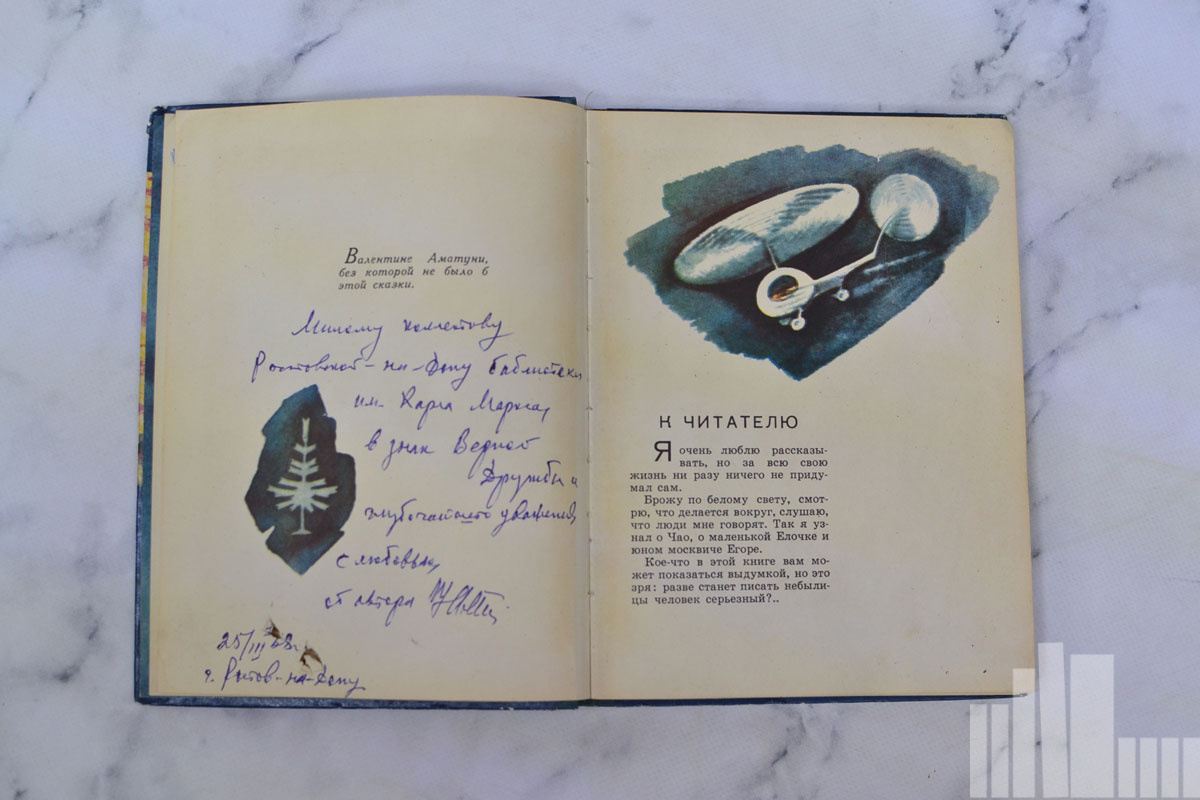 Валентине Аматуни,
без которой не было б
этой сказки.
Милому коллективу
Ростовской-на-Дону библиотеки
им. Карла Маркса,
в знак Верной
Дружбы и
глубочайшего уважения,
с любовью,
от автора
25/III 68 г.
г. Ростов-на-Дону
К ЧИТАТЕЛЮ
Я очень люблю рассказы-
вать, но за всю свою
жизнь ни разу ничего не приду-
мал сам.
Брожу по белому свету, смот-
рю, что делается вокруг, слушаю,
что люди мне говорят. Так я уз-
нал о Чао, о маленькой Елочке и
юном москвиче Егоре.
Кое-что в этой книге вам мо-
жет показаться выдумкой, но это
зря: разве станет писать небыли-
цы человек серьезный?..